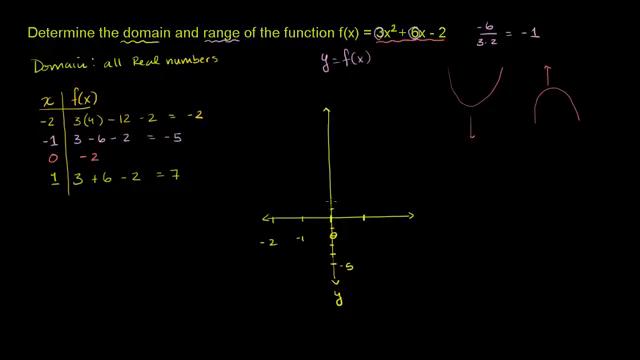 Determine the domain and range of the function f(x) = 3x² + 6x - 2
-6 / 3·2 = -1
Domain: all Real numbers
y = f(x)
x f(x)
-2 3(4) - 12 - 2 = -2
-1 3 - 6 - 2 = -5
0 -2
1 3 + 6 - 2 = 7
-2 -1
-5
y